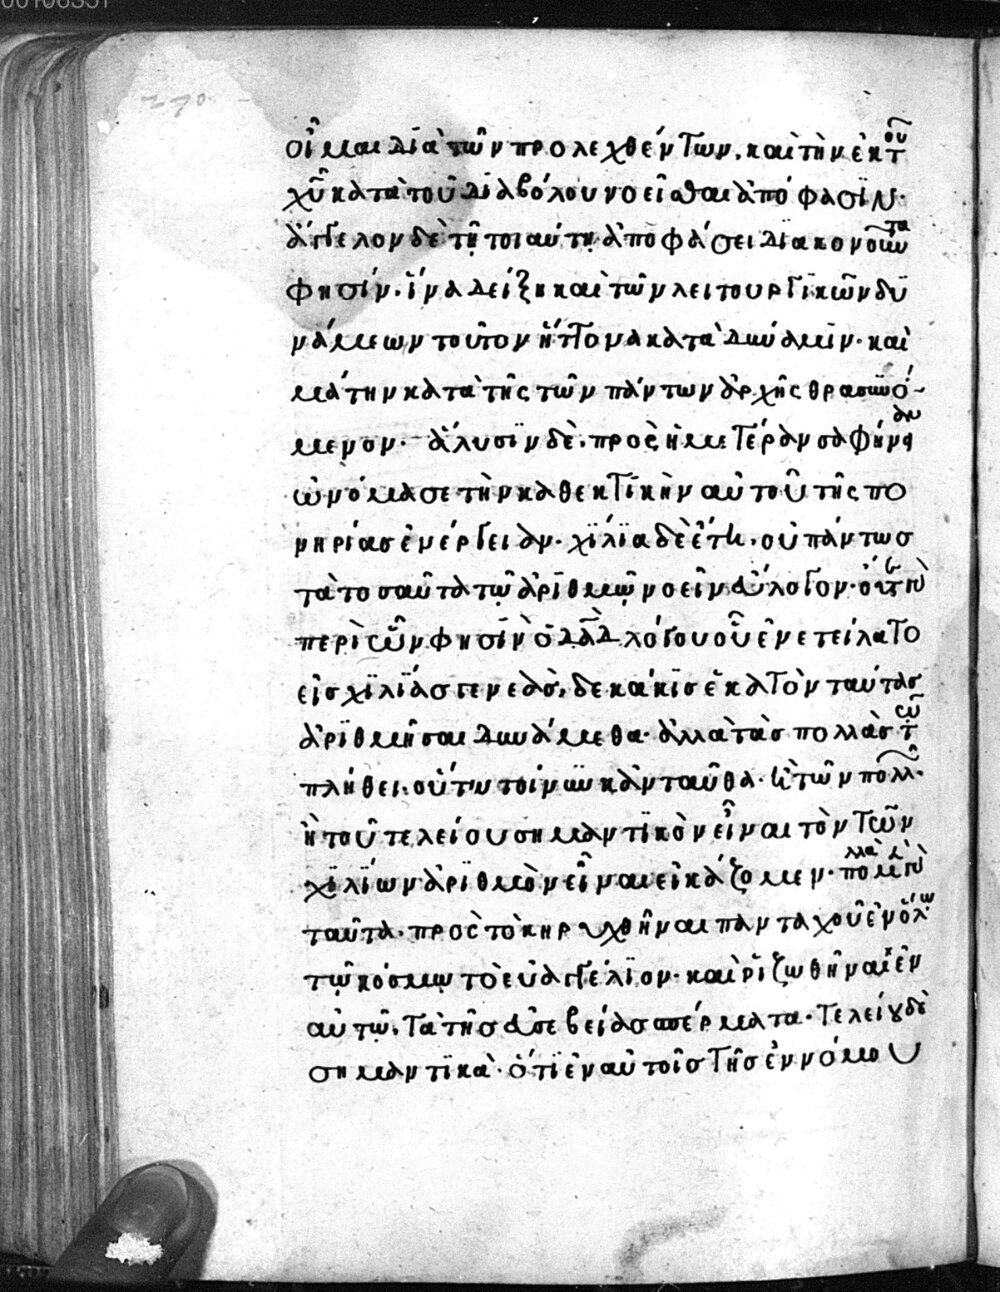 00106351
270
οἶμαι διὰ τῶν προλεχθέντων. καὶ τὴν ἐκ τοῦ
χυ κατὰ τοῦ διαβόλου νοεῖσθαι ἀπόφασϊν·
ἄγγελον δὲ τῆ τοιαύτη ἀποφάσει διακονοῦντα
φησίν. ἵνα δείξη καὶ τῶν λειτουργϊκῶν δυ
νάμεων τοῦτον ἥττονα κατὰ δύναμϊν. καὶ
μάτην κατὰ τῆς τῶν πάντων ἀρχῆς θρασυνό-
μενον. ἅλυσϊν δὲ. πρὸς ἡμετέραν σαφήνειαν
ὠνόμασε τὴν καθεκτϊκὴν αὐτοῦ τῆς πο
νηρίας ἐνέργειαν. χϊλϊα δὲ ἔτη. οὐ πάντως
τὰ τοσαῦτα τῷ ἀριθμῷ νοεῖν εὔλογον. οὔτε γὰρ
περὶ ὧν φησϊν ὁ δαδ λόγου οὗ ἐνετείλατο
εἰς χϊλϊάς γενεὰς, δεκάκϊς ἑκατὸν ταύτας
ἀρϊθμῆσαι δυνάμεθα. ἀλλὰ τὰς πολλὰς τῷ
πλήθει. οὕτω τοίνυν κἀνταῦθα. ἢ τῶν πολλῶν.
ἢ τοῦ τελείου σημαντϊκὸν εἶναι τὸν τῶν
χϊλϊων ἀρϊθμὸν εἶναι εἰκάζομεν. πολλὰ μὲν γὰρ
ταῦτα. πρὸς τὸ κηρυχθῆναι πανταχοῦ ἐν ὅλω
τῷ κόσμῳ τὸ εὐαγγέλϊον. καὶ ῥϊζωθῆναι ἐν
αὐτῷ. τὰ τῆς εὐσεβείας σπέρματα. τελείου δὲ
σημαντϊκὰ. ὅτϊ ἐν αὐτοῖς τῆς ἐννόμου